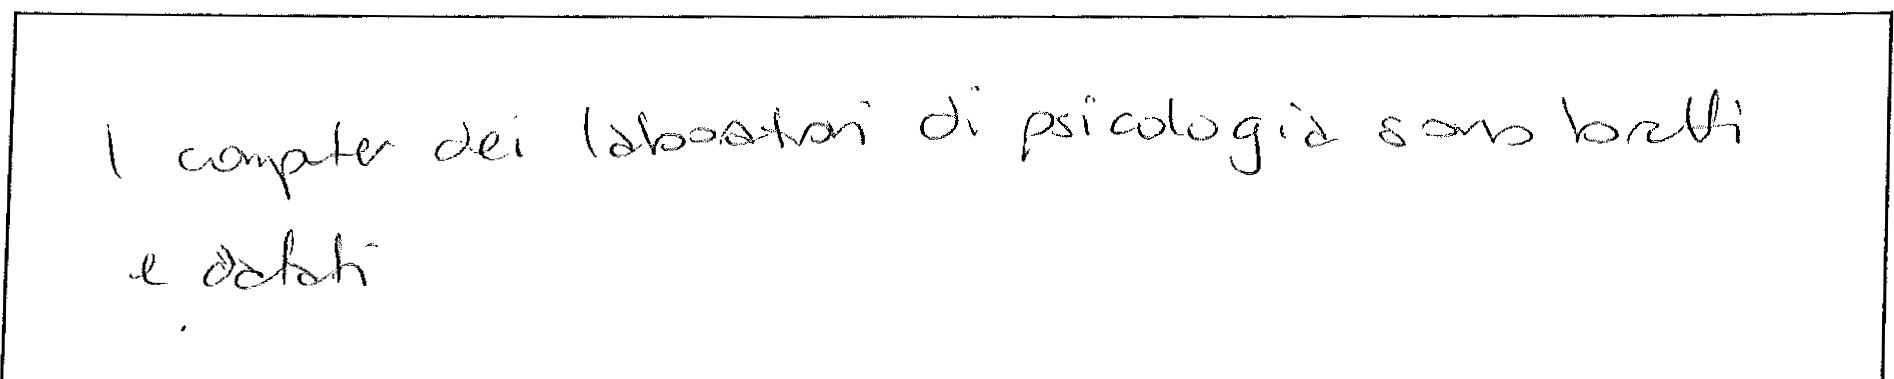 I computer dei laboratori di psicologia sono brutti
e datati